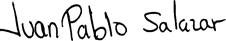 Juan Pablo Salazar